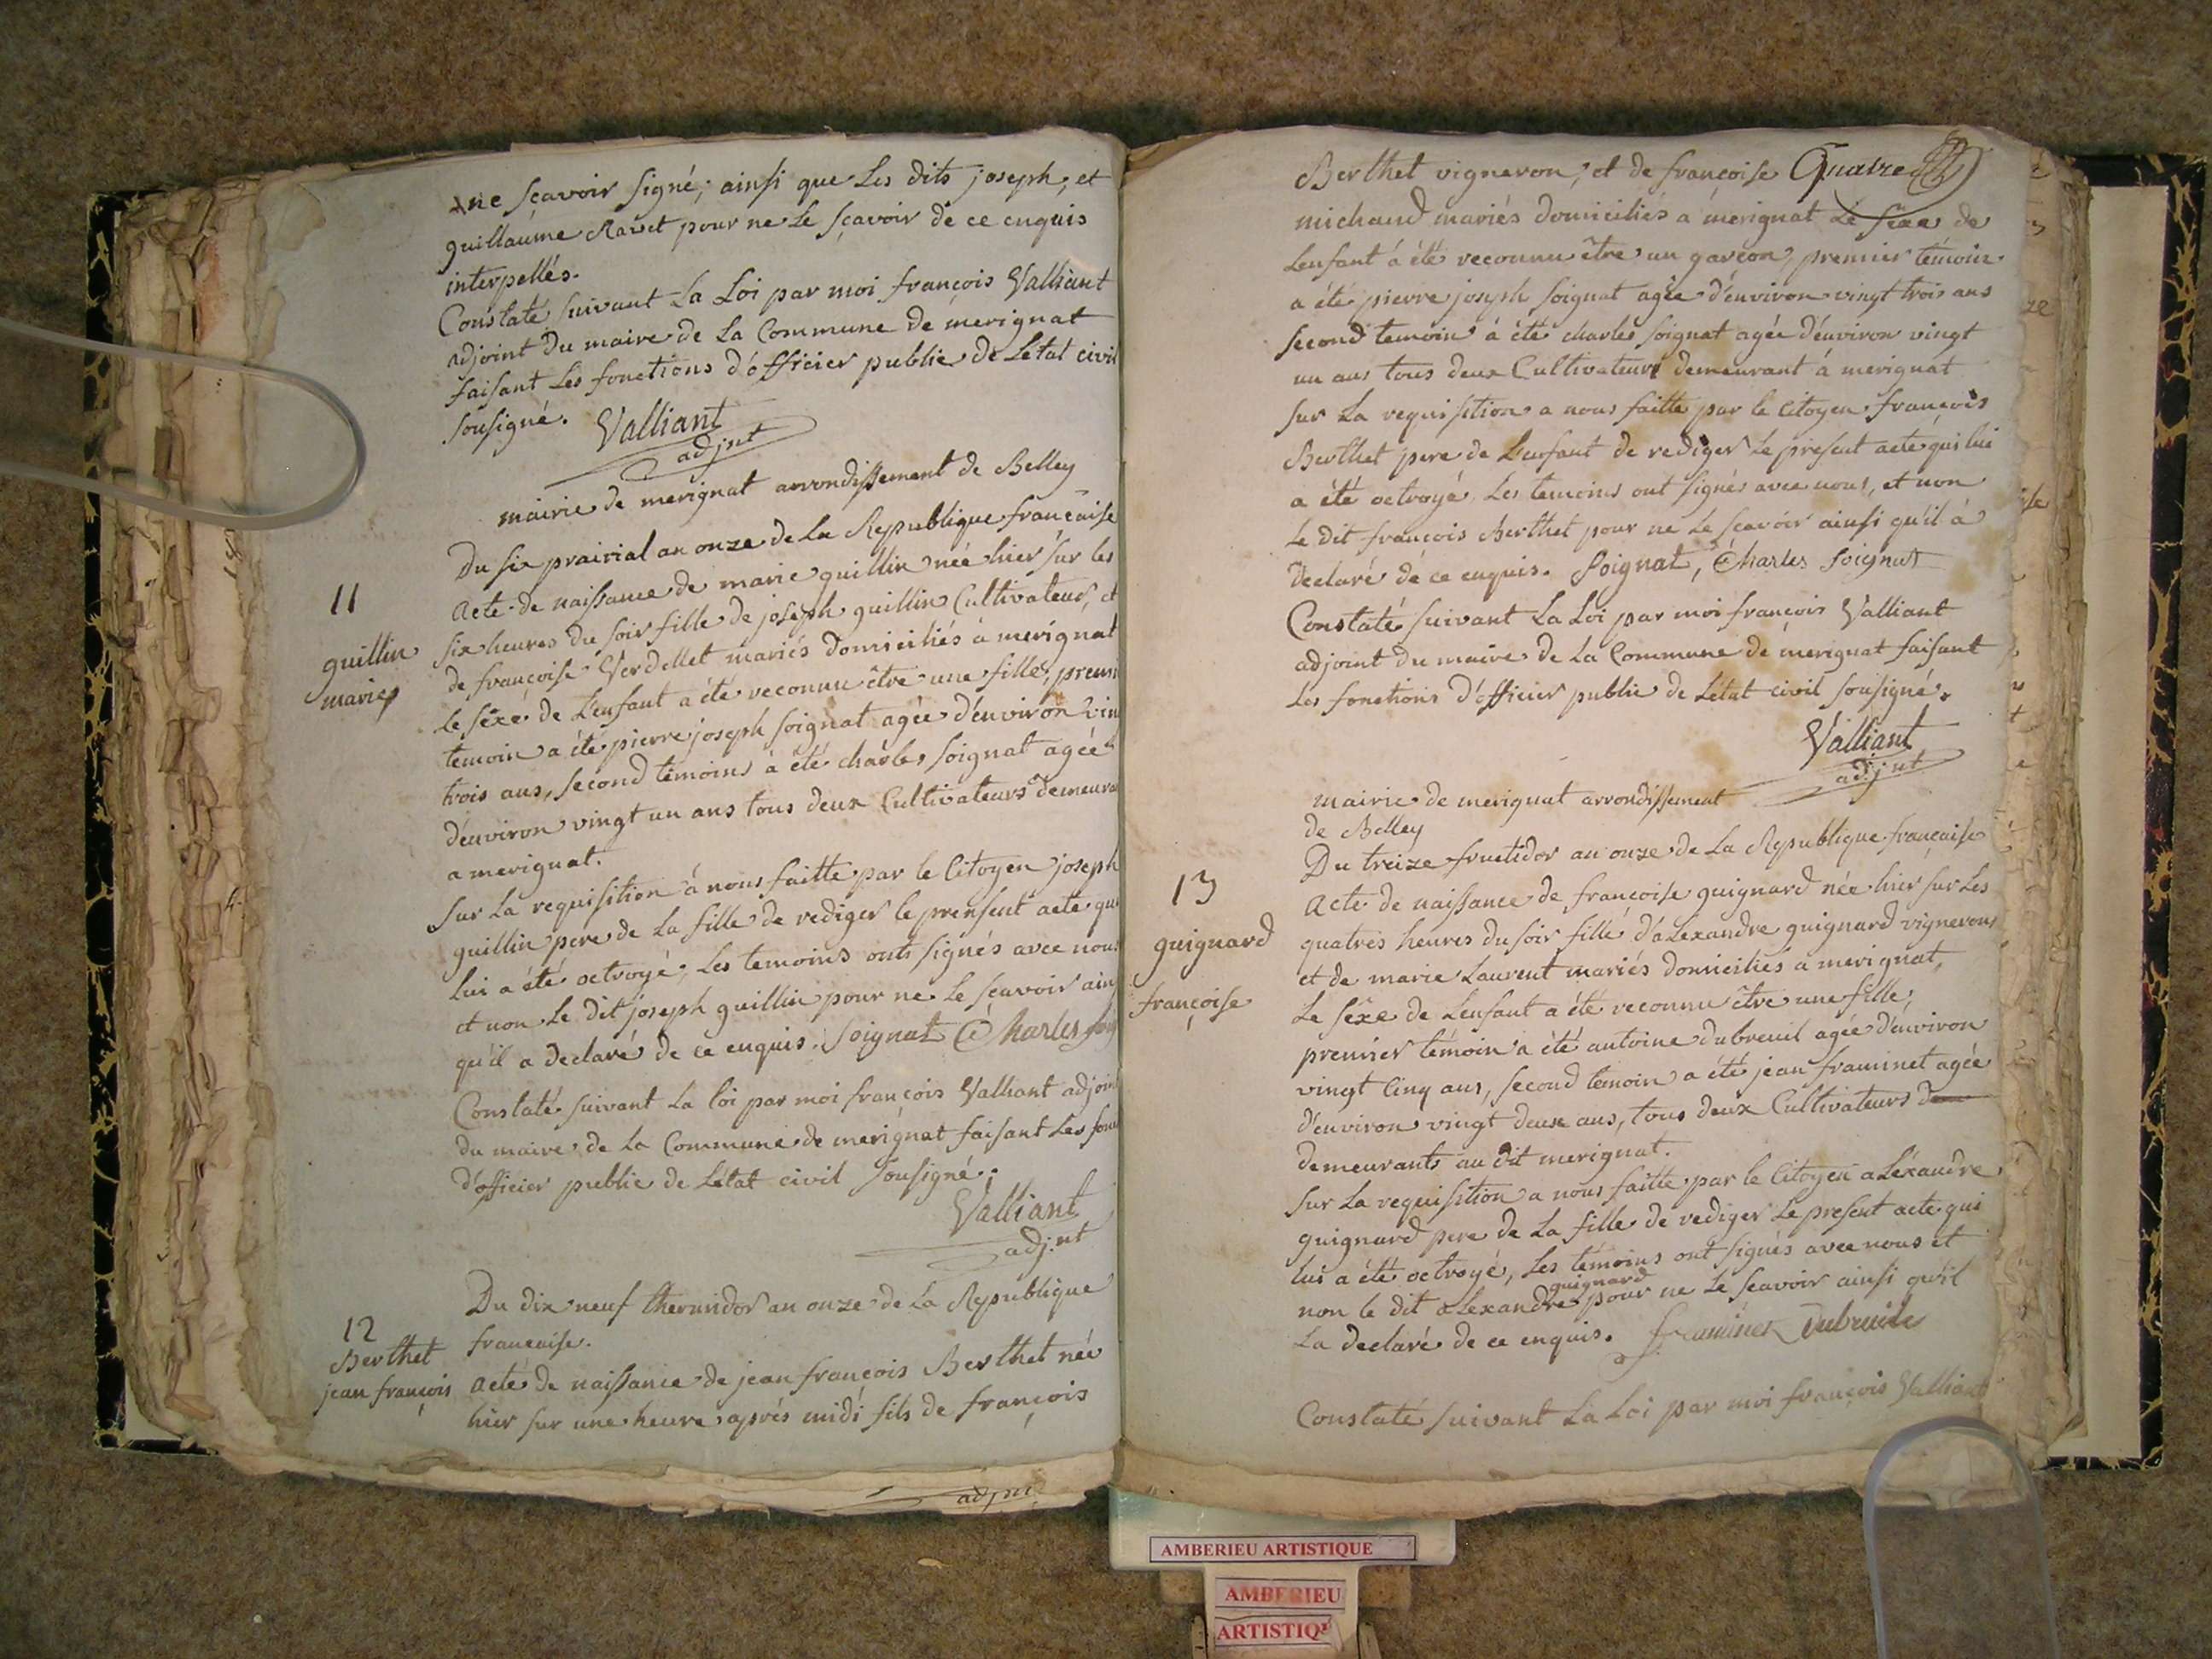 ne sçavoir signé; ainsi que Les dits joseph, et
guillaume Ravet pour ne Le sçavoir de ce enquis
interpellés.
Constaté suivant La Loi par moi françois Valliant
adjoint Du maire de La Commune de merignat
faisant Les fonctions d'officier public de Letat civil
sousigné. Valliant
adjnt
mairie de merignat arrondissement de Belley
Du six prairial an onze de La Republique française
11
guillin
marie
acte de naissance de marie guillin née hier sur les
six heures du soir fille de joseph guillin Cultivateur, et
de françoise Verdellet mariés domiciliés à merignat
Le sexe de L'enfant a été reconnu être une fille, prem
temoin a été pierre joseph soignat agée d'environ vin
trois ans, second témoins à été charles soignat agée
d'environ vingt un ans tous deux Cultivateurs demeura
a merignat.
sur La requisition à nous faitte par le Citoyen joseph
guillin pere de La fille de rediger le prensent acte qu
lui a été octroyé, Les temoins onts signés avec nous
et non Le dit joseph guillin pour ne Le sçavoir ains
qu'il a declaré de ce enquis. soignat Charles soig
Constaté suivant La loi par moi françois Valliant adjoin
du maire de La Commune de merignat faisant Les fonc
d'officier public de L'état civil sousigné.
Valliant
adj.nt
Du dix neuf thermidor an onze de La Republique
française.
12
Berthet
jean françois
acte de naissance de jean françois Berthet née
hier sur une heure après midi fils de françois
adjnt
Berthet vigneron, et de françoise Quatre
michaud mariés domiciliés a merignat Le sexe de
Lenfant à été reconnu être un garçon, premier témoin
a été pierre joseph soignat agée d'environ vingt trois ans
second temoin à été charles soignat agée d'environ vingt
un ans tous deux Cultivateurs demeurant à merignat
sur La requisition a nous faitte par le Citoyen françois
Berthet pere de L'enfant de rediger Le present acte qui lui
a été octroyé, Les temoins ont signés avec nous, et non
Le dit françois Berthet pour ne Le sçavoir ainsi qu'il à
declaré de ce enquis. soignat, Charles soignat
Constaté suivant La Loi par moi françois Valliant
adjoint du maire de La Commune de merignat faisant
Les fonctions d'officier public de L'état civil sousigné.
Valliant
adjnt
mairie de merignat arrondissement
de Belley
Du treize fructidor an onze de La Republique française
13
guignard
françoise
acte de naissance de françoise guignard née hier sur Les
quatres heures du soir fille d'aLexandre guignard vignerons
et de marie Laurent mariés domiciliés a merignat,
Le sêxe de Lenfant a été reconnu être une fille,
premier témoin a été antoine dubreuil agée d'environ
vingt Cinq ans, second temoin a été jean framinet agée
d'environ vingt deux ans, tous deux Cultivateurs de
demeurants au dit merignat.
sur La requisition a nous faitte par le Citoyen aLexandre
guignard pere de La fille de rediger Le present acte qui
lui a été octroyé, Les témoins ont signés avec nous et
non le dit aLexandre guignard pour ne Le sçavoir ainsi qu'il
La declaré de ce enquis. framinet Dubreuile
Constaté suivant La Loi par moi françois Valliant
AMBERIEU ARTISTIQUE
AMBERIEU
ARTISTIQ